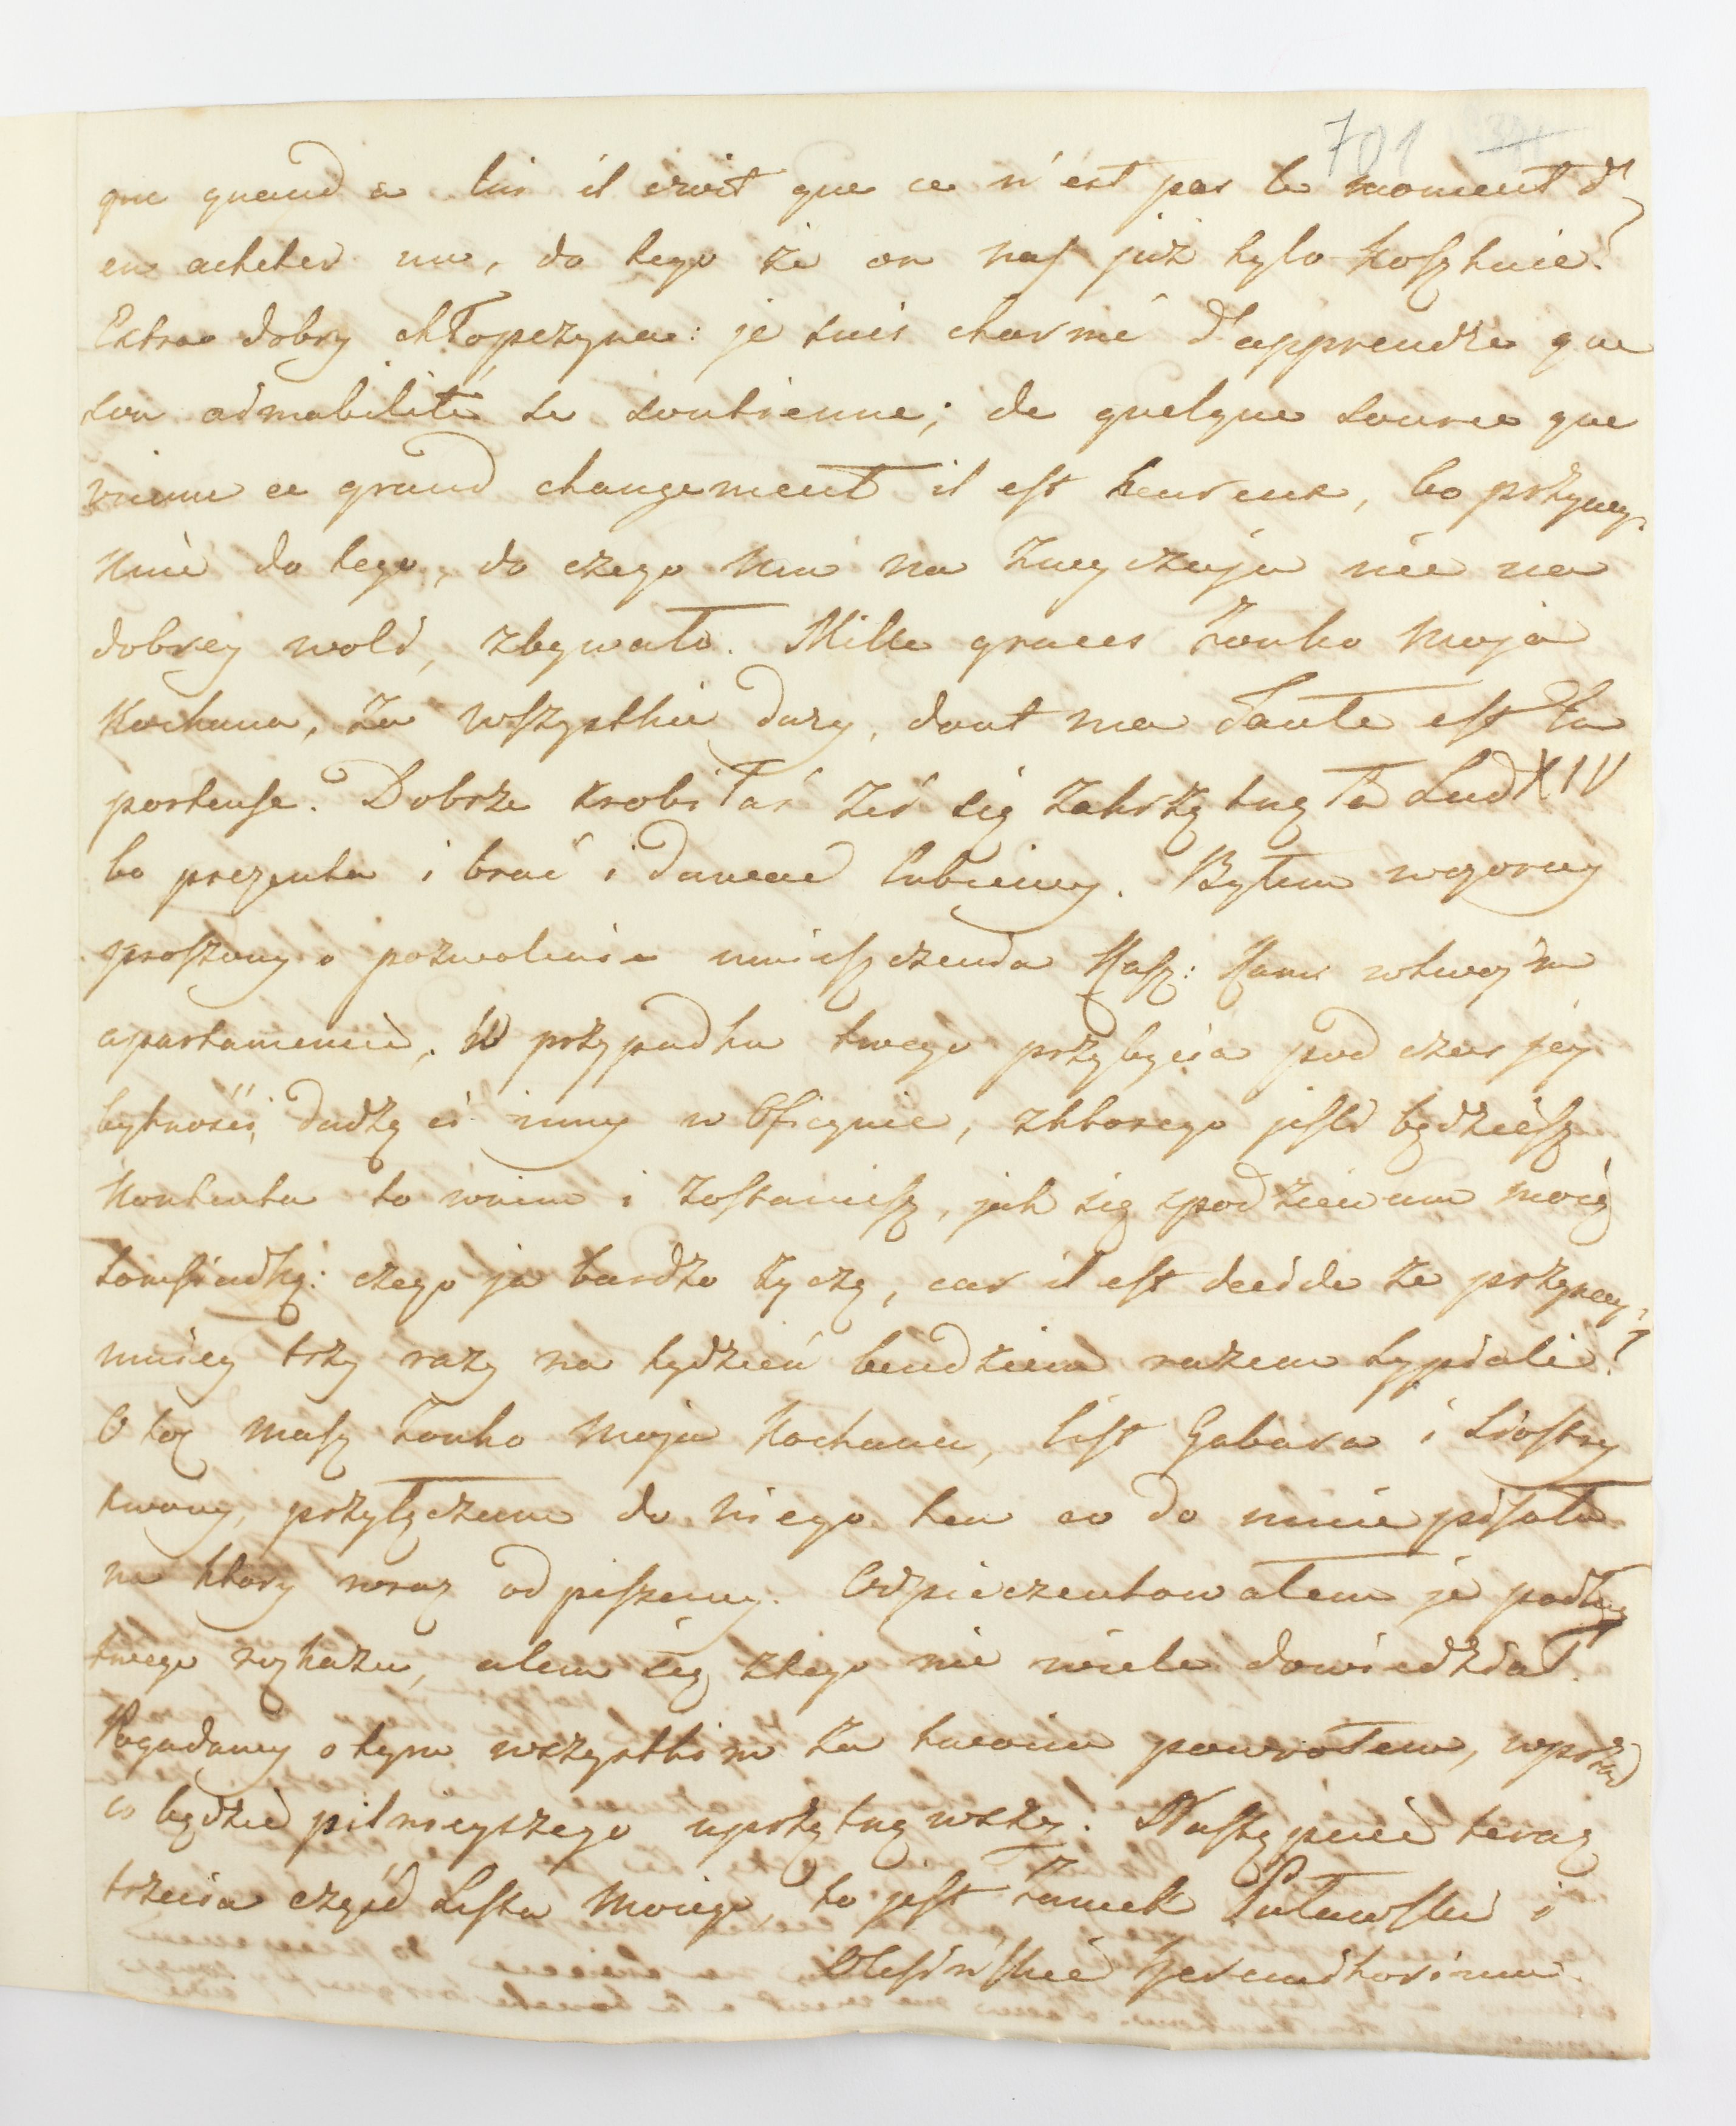 701
que quand a lui il croit que ce n'est pas le moment d'
en acheter un, do tego że on nas już tylo kosztuie!
Extra dobry chłopczyna: je suis charmé d'apprendre que
son admabilité se soutienne; de quelque source que
vienne ce grand changement il est heureux, bo przynay-
mnie do tego, do czego mu na zwyczaju nie na
dobrey woli, zbywało. Mille graces Zonko moja
Kochana, za wszystkie dary, dont ma Tante est la
porteuse. Dobrze zrobiłaś żeś się zakrzątnęła Lud XIV
bo prezenta i brać i dawać lubiemy. Byłem wczoray
proszony o pozwolenie umieszczenia Kasz: Kams w twojm
apartamencie, W przypadku twego przybycia pod czas jey
bytności, dadzą ci inny w Oficynie, z ktorego jeśli będziesz
kontenta to w nim i zostaniesz, jak się spodziewam moią
somsiadką: czego ja bardzo życzę, car il est decidé że przynay-
mniey trzy razy na tydzień bendziem razem sypiali!
Otoż masz Zonko moja Kochana, list Gabara i Siostry
twoiey, przyłączam do niego ten co do mnie pisała
na ktory wraz odpiszemy. Odpieczentowałem je podług
twego rozkazu, alem się z tego nie wiele dowiedział.
Pogadamy o tym wszystkim za twoim powrotem, wprzod
co będzie pilnieyszego uprzątnąwszy. Następuie teraz
trzecia część Listu moiego, to jest Zamek Puławski i
Olesińskie Gerendkorimm.